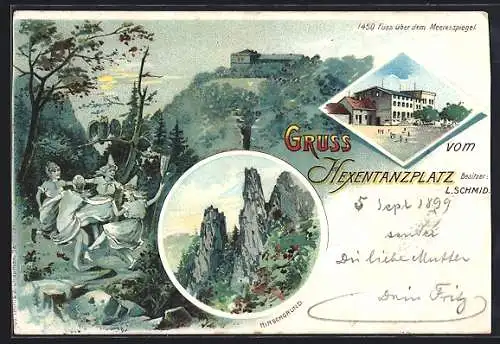 1450 Fuss über dem Meeresspiegel.
GRUSS
vom
HEXENTANZPLATZ
Besitzer:
L. SCHMID.
5 Sept 1899
sendet
Dir liebe Mutter
Dein Fritz
HIRSCHGRUND.